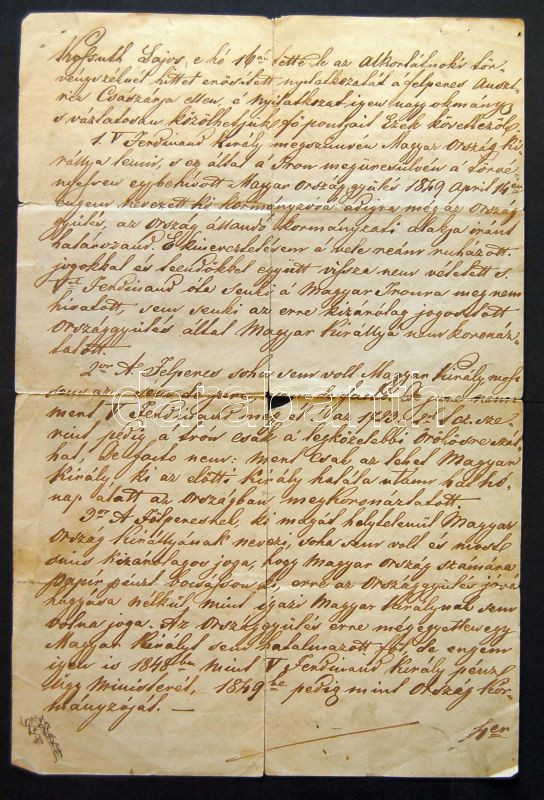 Kossuth Lajos, e hó 16án tette le az Alkorlátnoki tör=
vényszéknél hittel erősített nyilatkozatát a felperes Auszt
ria Császárja ellen, e nyilatkozat igen nagy okmány
s vázlatosan közölhetjük fő pontjait Ezek következők
1. V Ferdinand Király megszünvén Magyar Ország ki
rállya lenni, s ez által a Tron megüresülvén a törvé
nyessen egybehivott Magyar Országgyülés 1849 April 14en
engem nevezett ki kormányzóvá, addigra míg az Ország
gyülés, az Ország állandó kormányzati alakja iránt
határozand. E kineveztetésem a vele reám ruházott
jogokkal és teendőkkel együtt vissza nem vétetett s
Vik Ferdinand óta senki a Magyar Tronra meg nem
hivatott, sem senki az erre kizárólag jogosított
Országgyülés által Magyar Királlyá nem koronáz=
tatott.
2or A Felperes soha sem volt Magyar Király, most
sem az,
ment V Ferdinand még él. Az
rint pedig a trón csak a legközelebbi örökösre szál
hat, de ipso nem: mert csak az lehet Magyar
Király, ki az előtti Király halála után hat hó,
nap alatt az Országban megkoronáztatott.
3or A Fölperesnek, ki magát helytelenül Magyar
Ország királlyának nevezi, soha sem volt és most
sincs kizárólagos joga, hogy Magyar Ország számára
papir pénzt bocsásson ki erre az országgyülés jóvá
hagyása nélkül mint igazi Magyar Királynak sem
volna joga. Az Országgyülés erre meg egyetlen egy
Magyar Királyt sem hatalmazott fel, de engem
igen is 1848ban mint V Ferdinand Király pénz
ügy Ministerét, 1849be pedig mint Ország Kor=
mányzóját. —
4er
darabanth